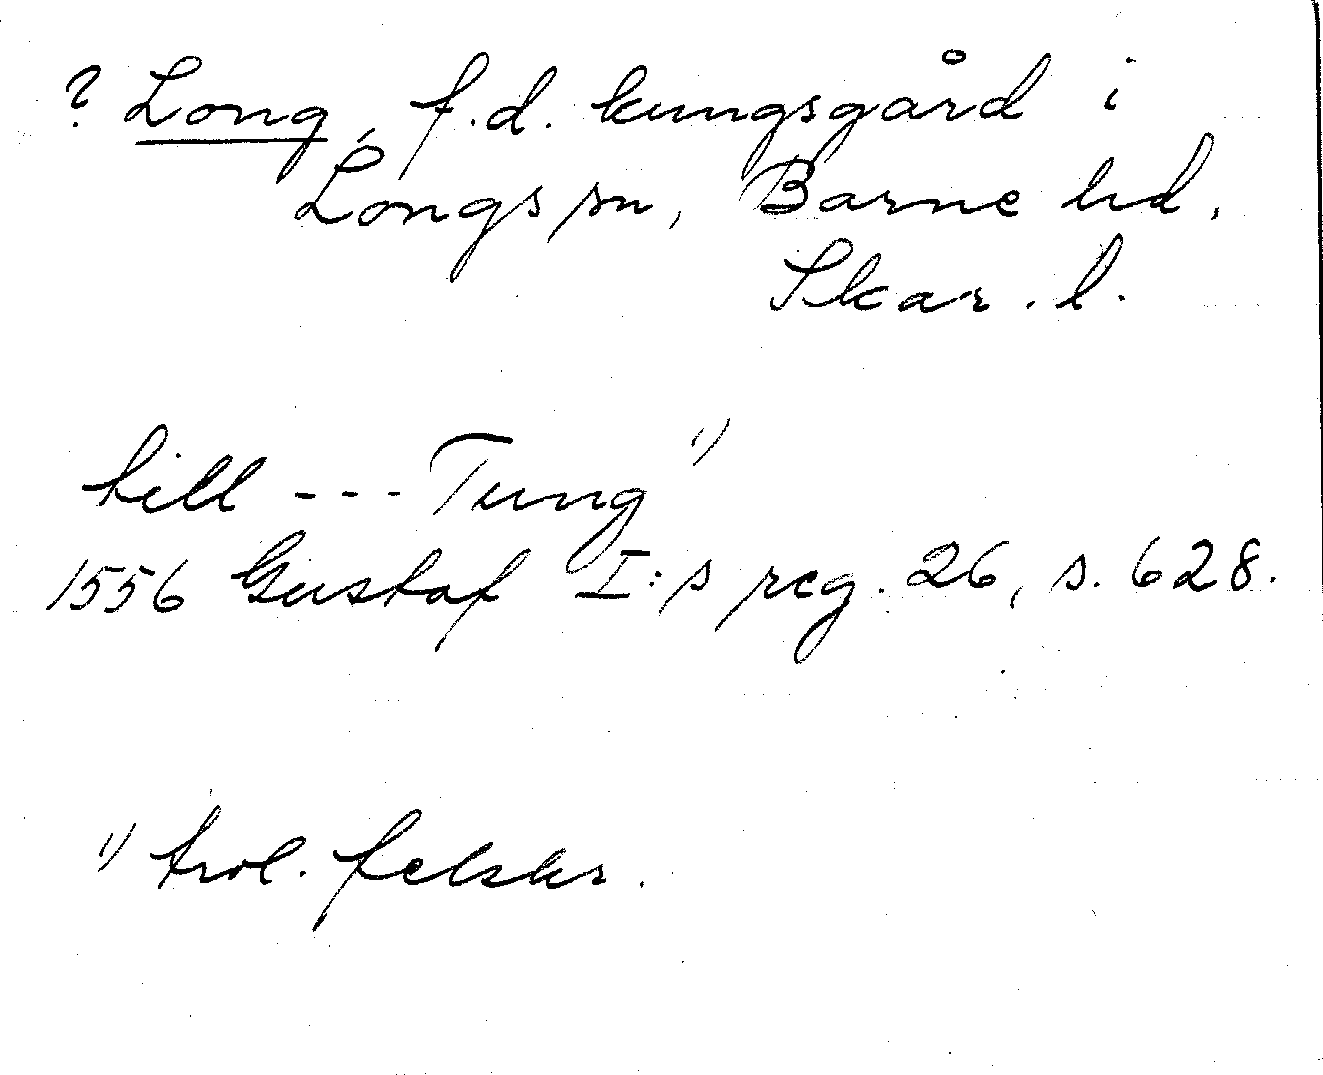 ? Long, f.d. kungsgård i
Longs sn, Barne hd,
Skar. l.
till --- Tung ¹)
1556 Gustaf I:s reg. 26, s. 628.
¹) trol. felskr.